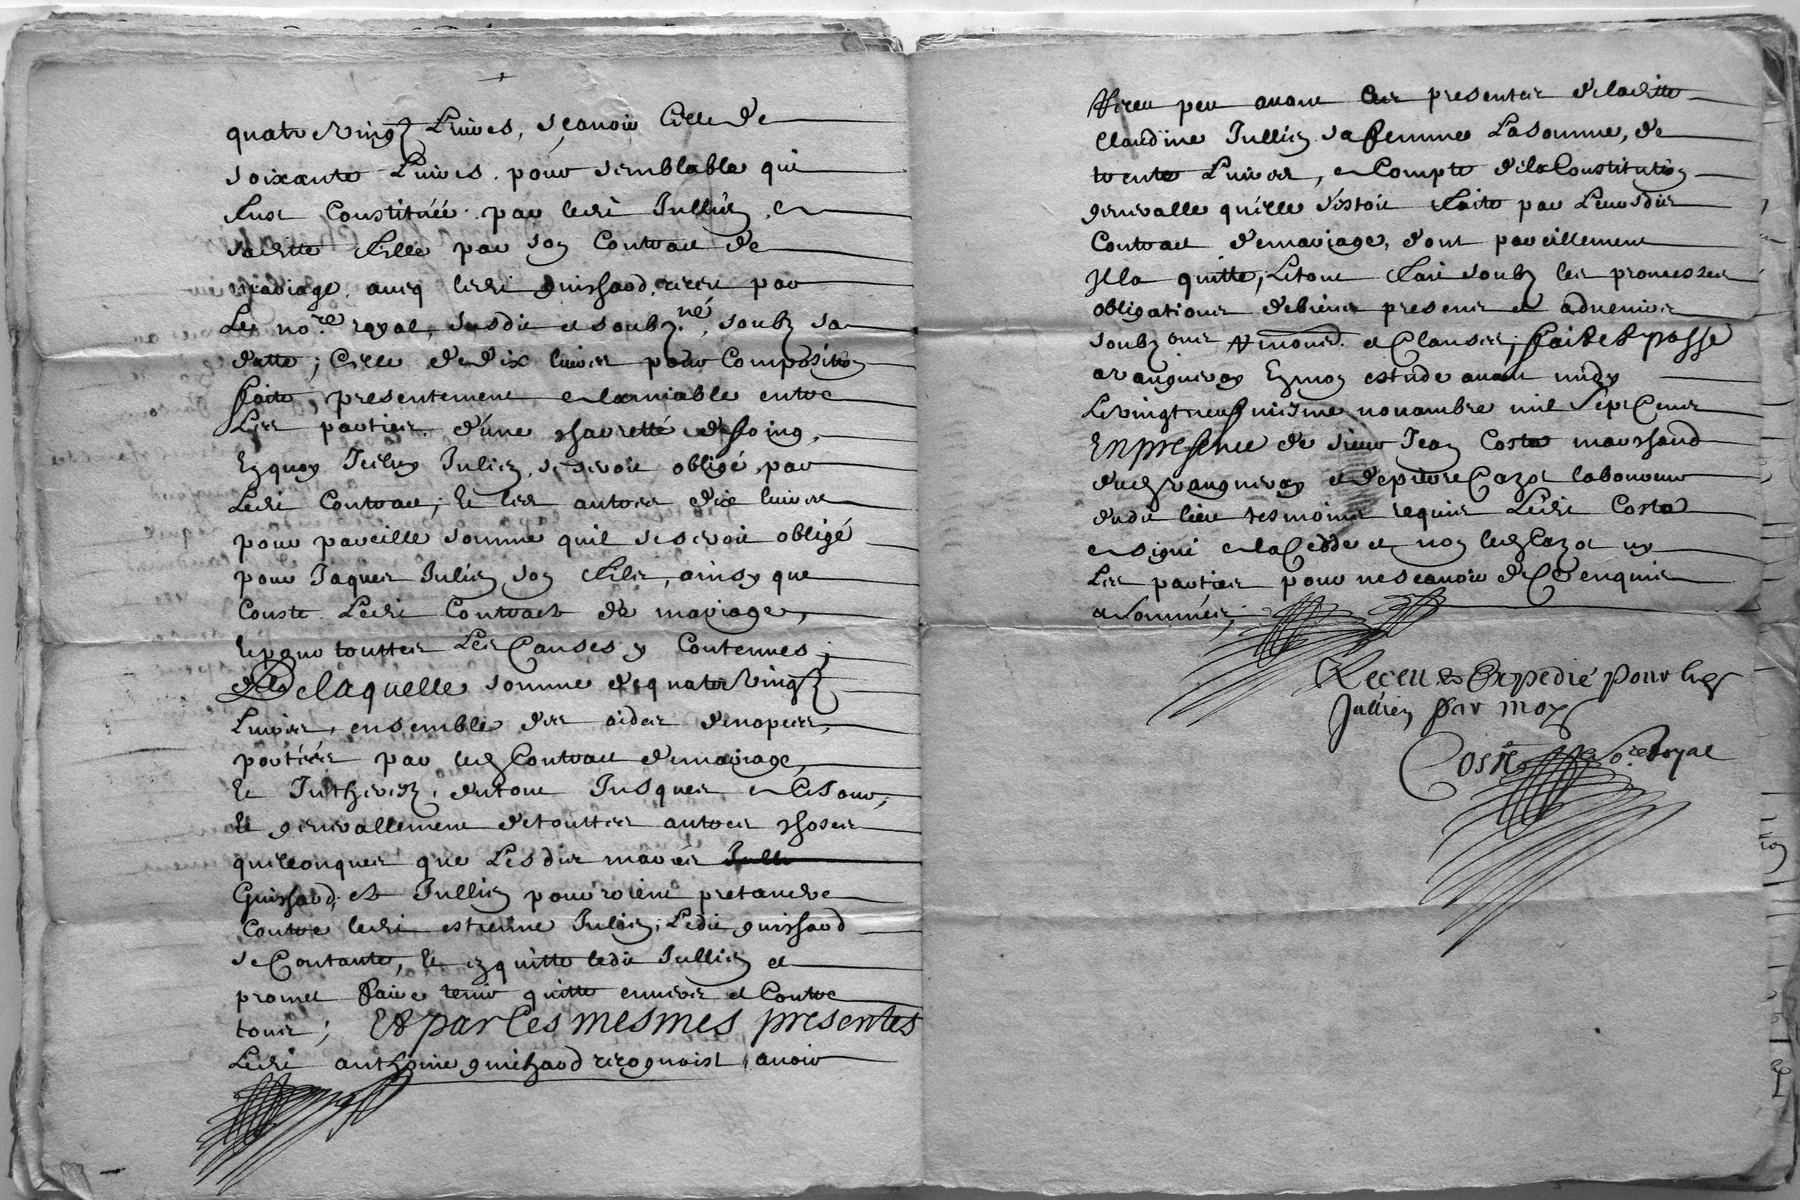 quatrevingtz Livres, sçauoir Celle de
soixante Livres pour semblable qui
fust Constituée par ledit Jullien a
saditte fille par son Contract de
mariage auecq ledit guishard, receu par
Le no.re royal susdit et soubz.né, soubz sa
datte; Celle de dix livres pour Composition
faite presentement a lamiable entre
Les parties d'une charrettée de foing,
En quoy Jceluy Julien se seroit obligé par
Ledit Contract; Et les autres dix livres
pour pareille somme quil se seroit obligé
pour Jaques Julien son fils, ainsy que
Conste Ledit Contract de mariage,
Et pour touttes Les Causes y Contenues;
De laquelle somme de quatrevingtz
Livres, ensemble des aides de nopces,
portées par led Contract de mariage,
Et Jntherestz, du tout Jusques a Ce Jour,
Et generallement de touttes autres choses
quelconques que Lesdits mariés
Guishard, et Jullien pourroient pretandre
Contre ledit estienne Julien; Ledit guishard
se Contante, Et en quitte ledit Jullien et
promet faire tenir quitte enuers et Contre
tous; Et par Ces mesmes presentes
Ledit anthoine guichard recognoist auoir
Receu peu auant Les presentes de laditte
Claudine Jullien sa femme La somme, de
trente Livres, a Compte de la Constitution
generalle qu'elle s'estoit faite par Leursdits
Contract de mariage, dont pareillement
Jl la quitte; Le tout faict soubz les promesses
obligations de biens presens et aduenir
soubz ons renons et Clauses; fait et passé
a vangneray En mon estude auant midy
Le vingt neufuiesme nouambre mil sept Cens
En presence de sieur Jean Coste marchand
dud vangneray et de pierre Cazot laboureur
dudit lieu tesmoins requis Ledit Coste
a signé a la Cedde et non led Cazot ny
Les parties pour ne scauoir de Ce enquis
et sommés;
Receu et Expedié pour led
Jullien par moy
Coste No.re Royal